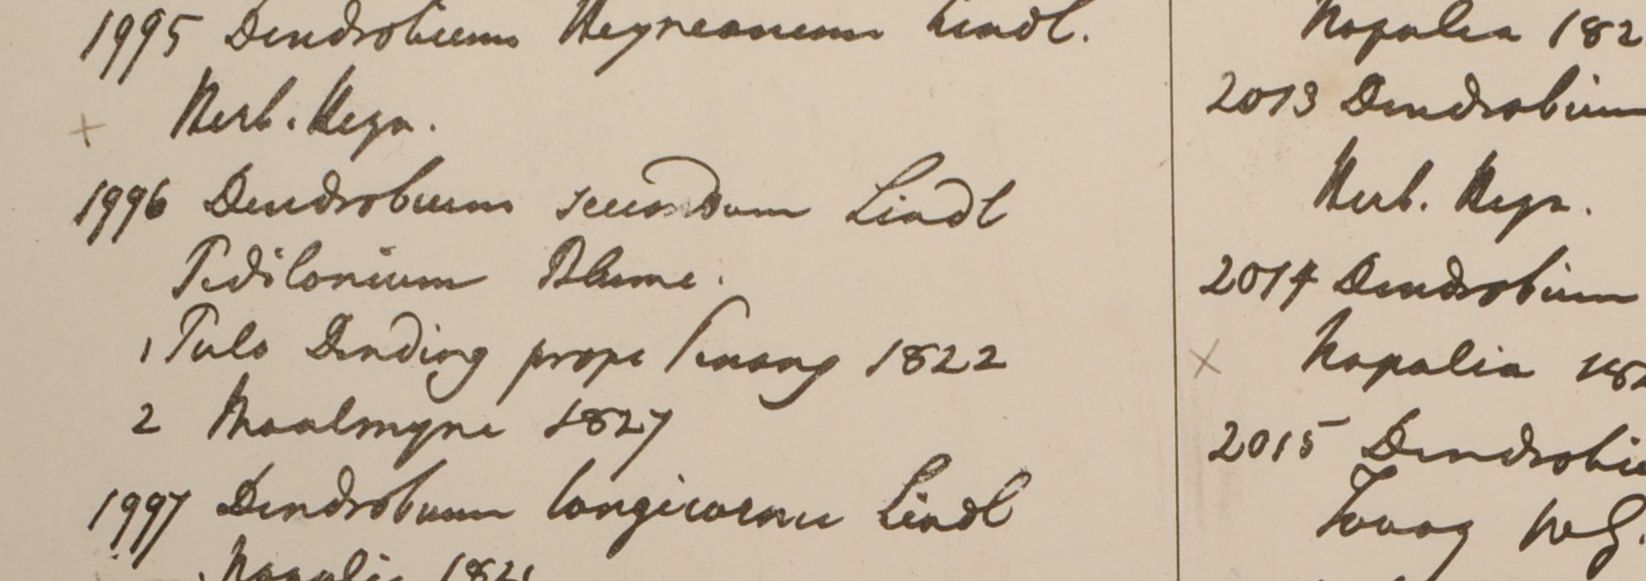 1995 Dendrobium Heyneanum Lindl.
Herb. Heyn.
1996 Dendrobium secundum Lindl
Pedilonium Blume.
1 Pulo Dinding prope Penang 1822
2 Moalmyne 1827
1997 Dendrobium longicornu Lindl
Napalia 1821
Napalia 182
2013 Dendrobium
Herb. Heyn.
2014 Dendrobium
Napalia 182
2015 Dendrobiu
Tavoy W.G.